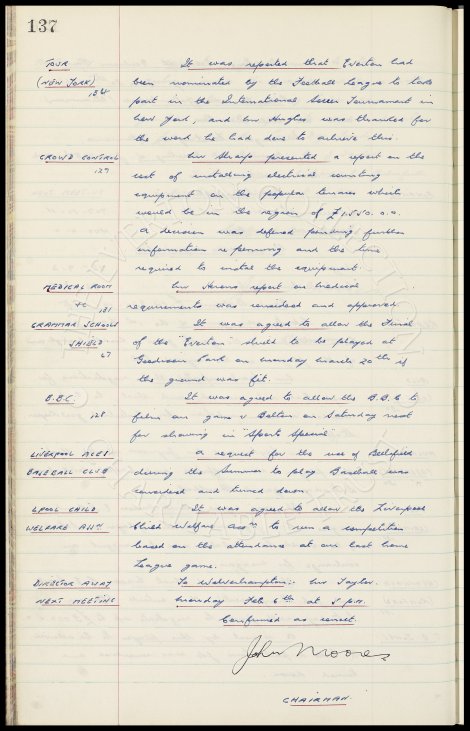 137
TOUR It was reported that Everton had
(NEW YORK) been nominated by the Football League to take
134 part in the International Soccer Tournament in
New York, and Mr Hughes was thanked for
the work he had done to achieve this.
CROWD CONTROL Mr Sharp presented a report on the
127 cost of installing electrical counting
equipment on the popular terraces which
would be in the region of £1550.0.0.
A decision was deferred pending further
information re planning and the time
required to instal the equipment
MEDICAL ROOM Mr report on medical
&c 131 requirements was considered and approved.
GRAMMAR SCHOOLS It was agreed to allow the Final
SHIELD of the "Everton" shield to be played at
67 Goodison Park on Monday March 20th if
the ground was fit.
B.B.C. It was agreed to allow the B.B.C to
128 film our game v Bolton on Saturday next
for showing in "Sports Special"
LIVERPOOL ACES A request for the use of Bellefield
BASEBALL CLUB during the Summer to play Baseball was
considered and turned down.
LPOOL CHILD It was agreed to allow the Liverpool
WELFARE ASSN. Child Welfare Assn to run a competition
based on the attendance at our last home
League game.
DIRECTOR AWAY To Wolverhampton:- Mr Taylor.
NEXT MEETING Monday Feb 6th at 5 p.m.
Confirmed as correct.
John Moores
CHAIRMAN.